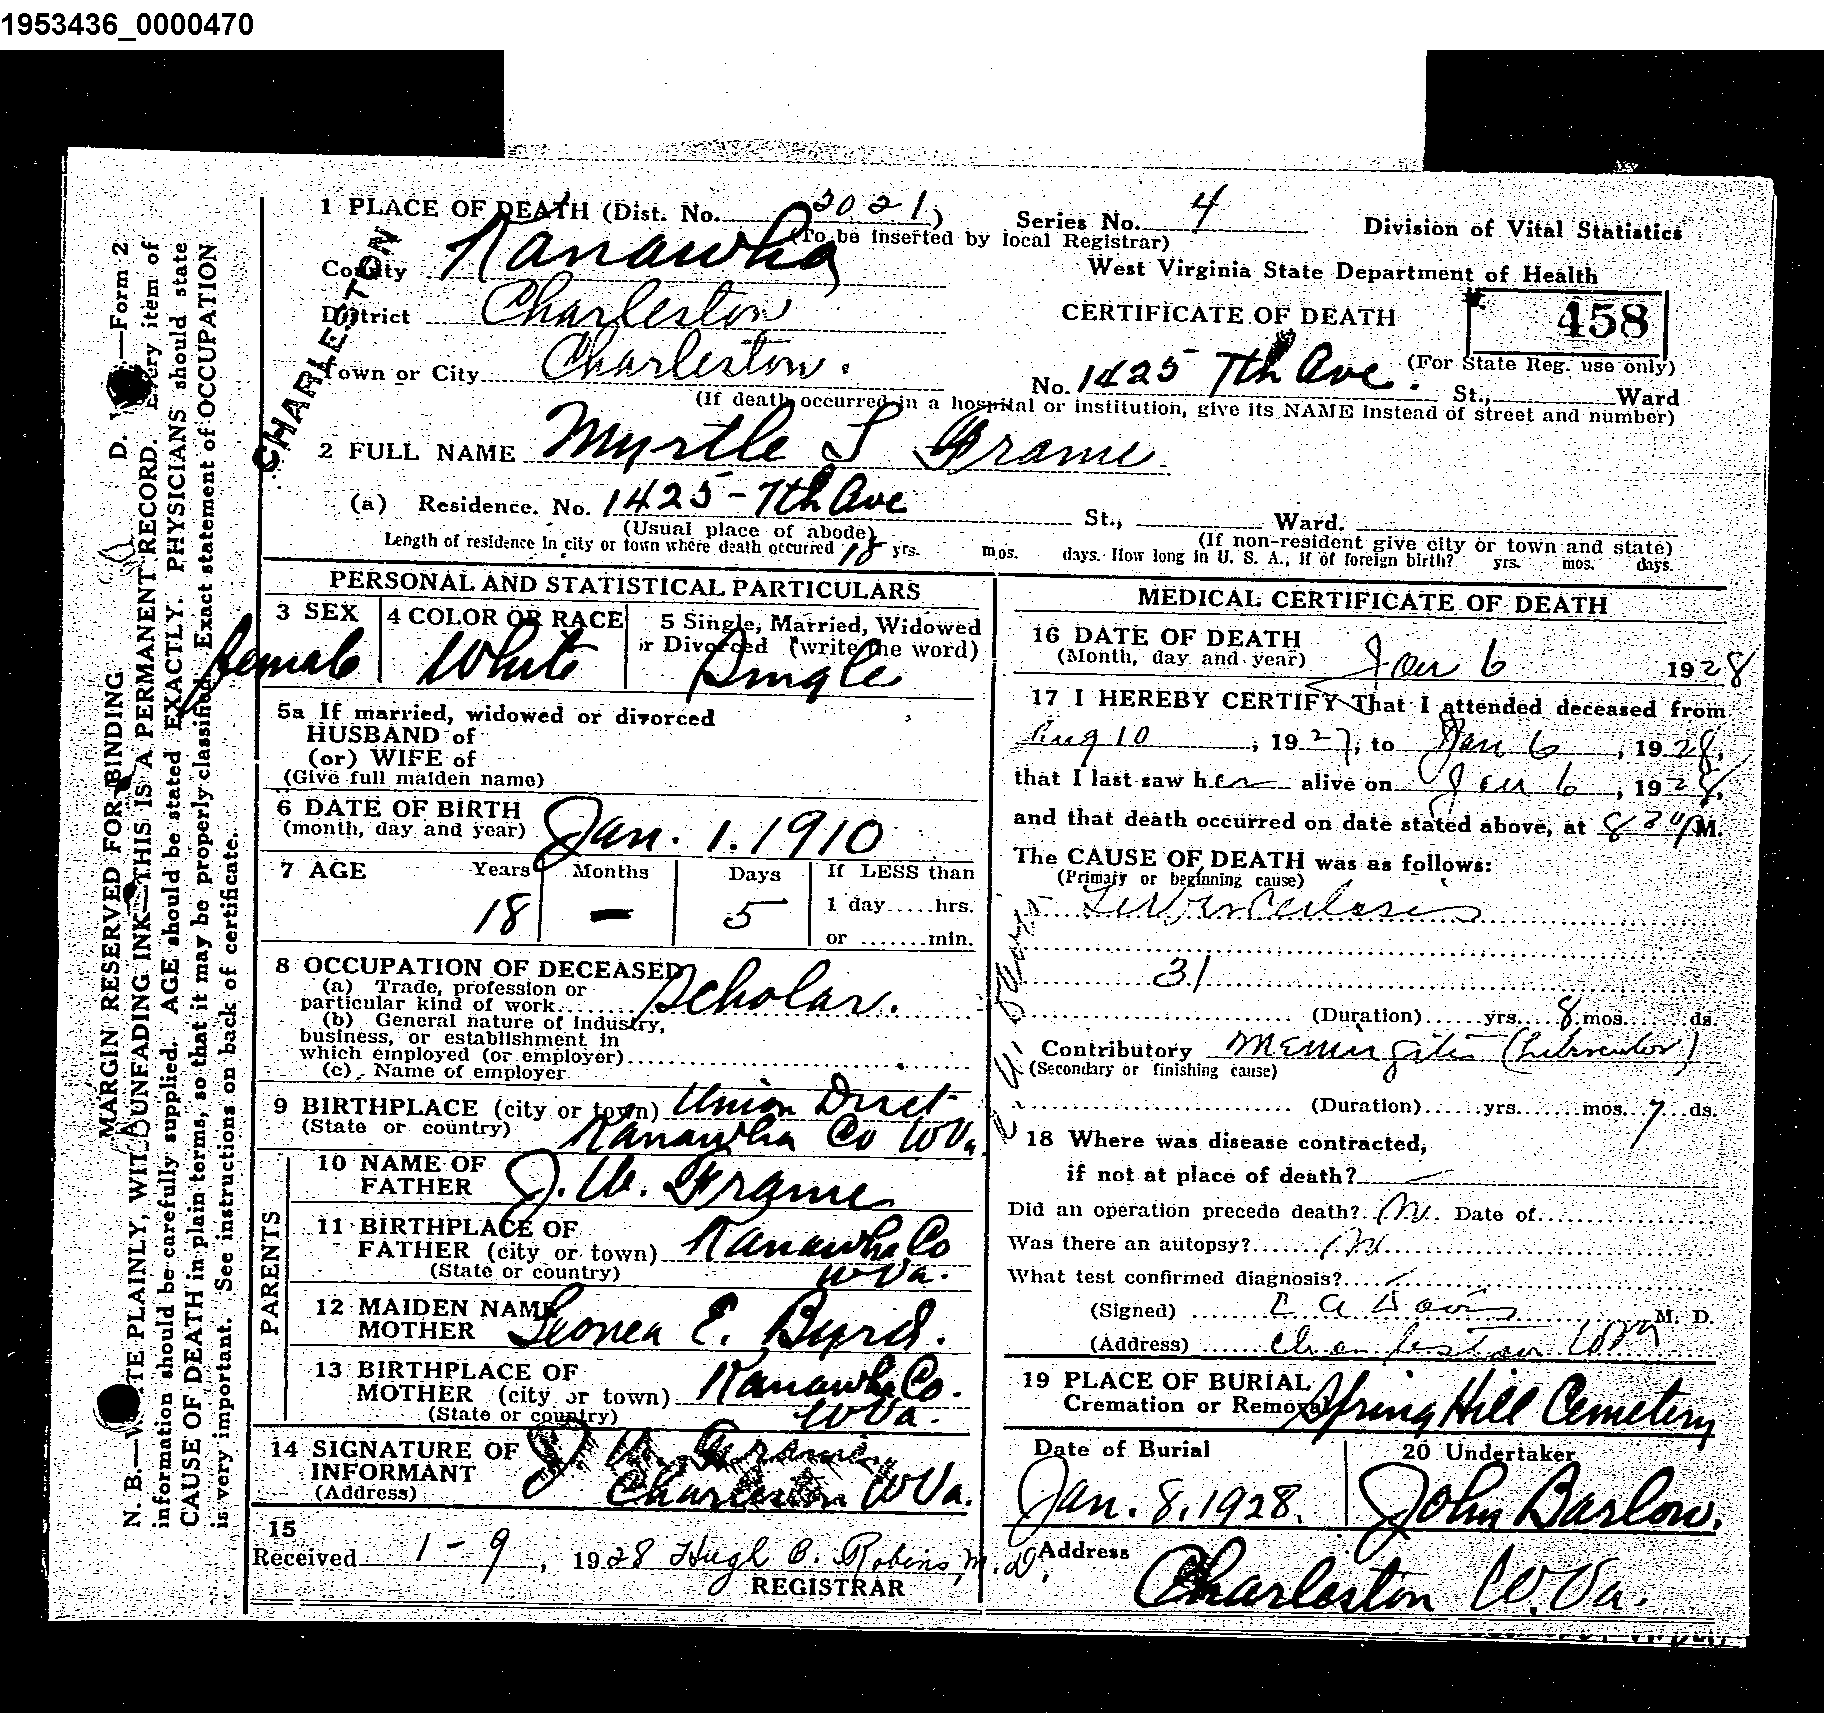 1953436_0000470
1 PLACE OF DEATH (Dist. No. 2021) Series No. 4 Division of Vital Statistics
(To be inserted by local Registrar)
County Kanawha West Virginia State Department of Health
CHARLESTON
District Charleston CERTIFICATE OF DEATH 458
(For State Reg. use only)
Town or City Charleston. No. 1425 7th Ave. St., Ward
(If death occurred in a hospital or institution, give its NAME instead of street and number)
2 FULL NAME Myrtle S Frame
(a) Residence. No. 1425-7th Ave St., Ward.
(Usual place of abode) (If non-resident give city or town and state)
Length of residence in city or town where death occurred 18 yrs. mos. days. How long in U. S. A., if of foreign birth? yrs. mos. days.
PERSONAL AND STATISTICAL PARTICULARS
3 SEX 4 COLOR OR RACE 5 Single, Married, Widowed
or Divorced (write the word)
female White Single
5a If married, widowed or divorced
HUSBAND of
(or) WIFE of
(Give full maiden name)
6 DATE OF BIRTH
(month, day and year) Jan. 1. 1910
7 AGE Years Months Days If LESS than
1 day hrs.
18 — 5
or min.
8 OCCUPATION OF DECEASED
(a) Trade, profession or
particular kind of work Scholar.
(b) General nature of industry,
business, or establishment in
which employed (or employer)
(c) Name of employer
9 BIRTHPLACE (city or town) Union Dist
(State or country) Kanawha Co W Va.
PARENTS
10 NAME OF
FATHER J. W. Frame
11 BIRTHPLACE OF
FATHER (city or town) Kanawha Co
(State or country) W Va.
12 MAIDEN NAME
MOTHER E. Byrd.
13 BIRTHPLACE OF
MOTHER (city or town) Kanawha Co.
(State or country) W Va.
14 SIGNATURE OF
INFORMANT J. W. Frame
(Address) Charleston W Va.
15
Received 1-9, 1928 Hugh B. Robins, M.D.
REGISTRAR
MEDICAL CERTIFICATE OF DEATH
16 DATE OF DEATH
(Month, day and year) Jan 6 1928
17 I HEREBY CERTIFY That I attended deceased from
Aug 10, 1927, to Jan 6, 1928,
that I last saw her alive on Jan 6, 1928,
and that death occurred on date stated above, at M.
The CAUSE OF DEATH was as follows:
(Primary or beginning cause)
Tuberculosis
31
(Duration) yrs. 8 mos. ds.
Contributory Meningitis (tubercular)
(Secondary or finishing cause)
(Duration) yrs. mos. 7 ds.
18 Where was disease contracted,
if not at place of death? —
Did an operation precede death? No. Date of
Was there an autopsy? No
What test confirmed diagnosis?
(Signed) Davis M. D.
(Address) Charleston W Va
19 PLACE OF BURIAL
Cremation or Removal Spring Hill Cemetery
Date of Burial 20 Undertaker
Jan. 8. 1928. John Barlow.
Address
Charleston W. Va.
D. —Form 2
MARGIN RESERVED FOR BINDING
N. B.—WRITE PLAINLY, WITH UNFADING INK—THIS IS A PERMANENT RECORD. Every item of
information should be carefully supplied. AGE should be stated EXACTLY. PHYSICIANS should state
CAUSE OF DEATH in plain terms, so that it may be properly classified. Exact statement of OCCUPATION
is very important. See instructions on back of certificate.